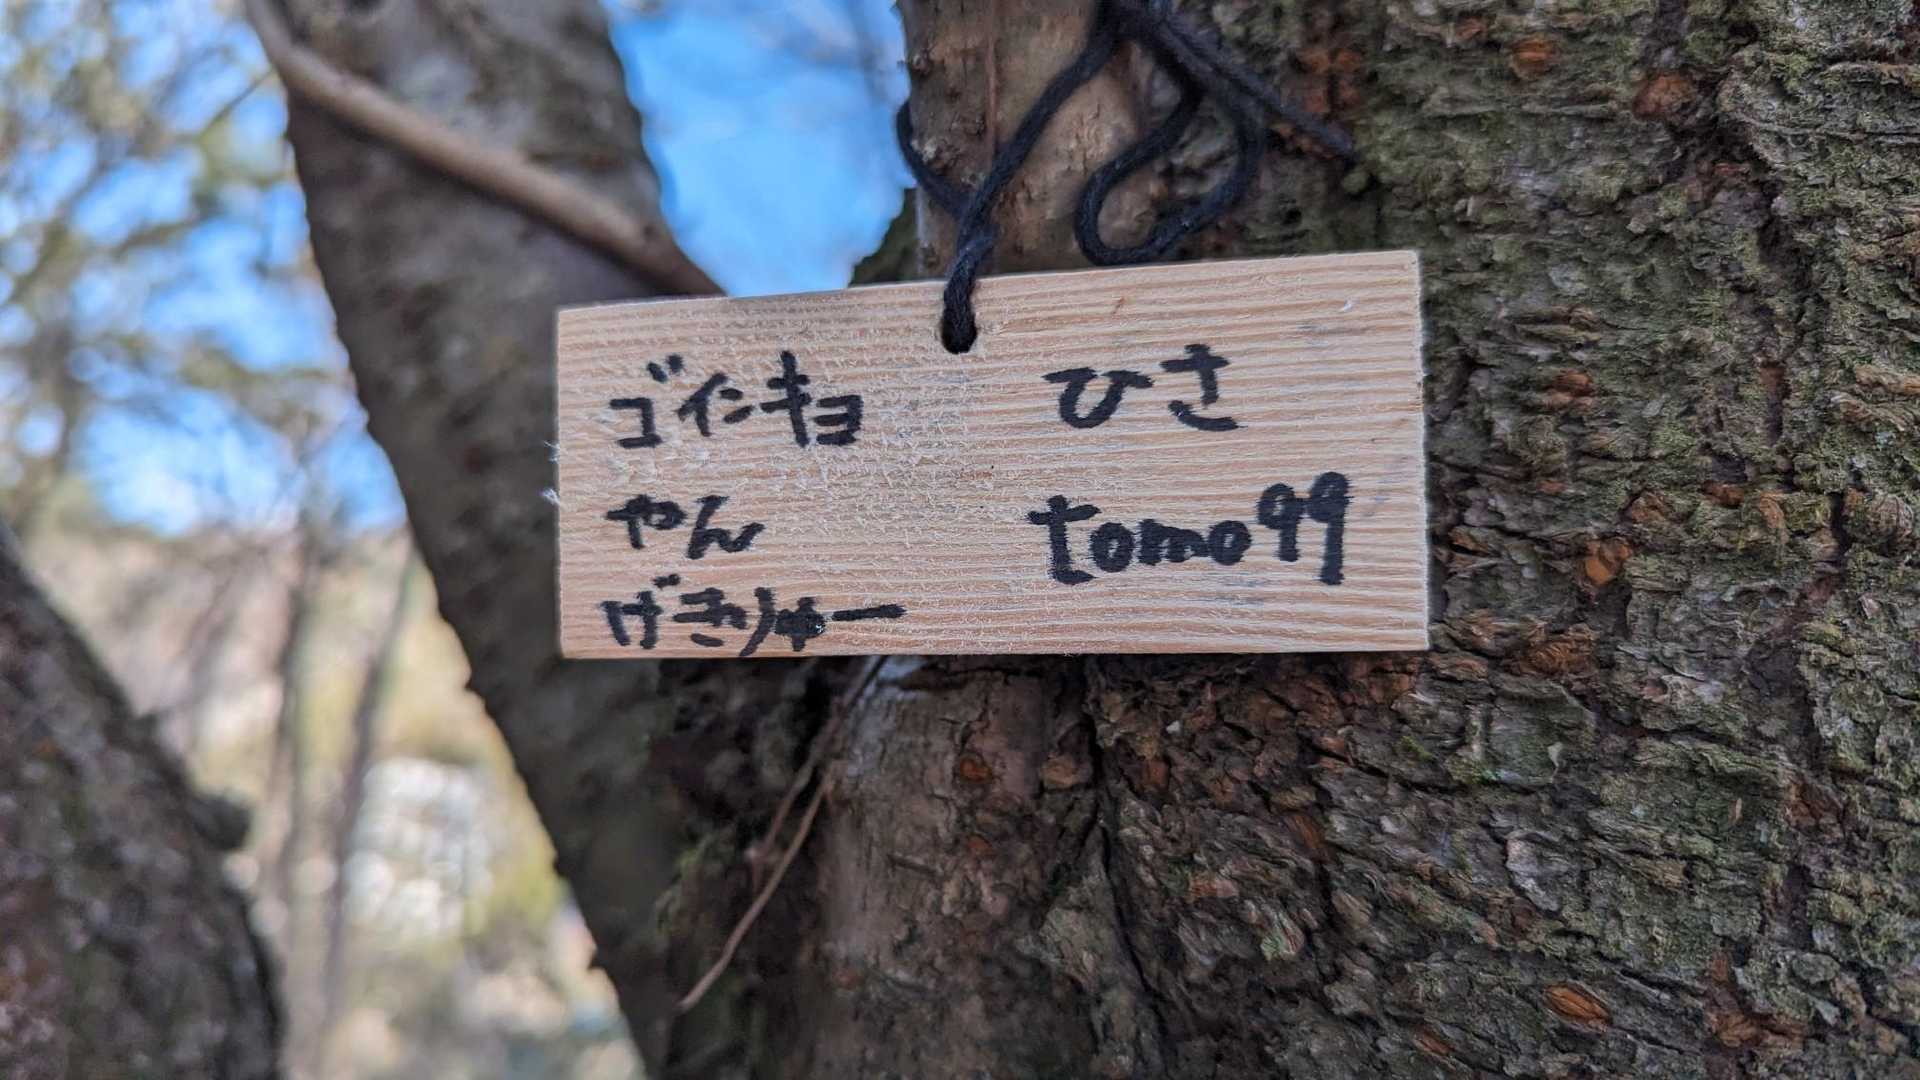 ゴインキョ
ひさ
やん
tomo99
げきりゅー